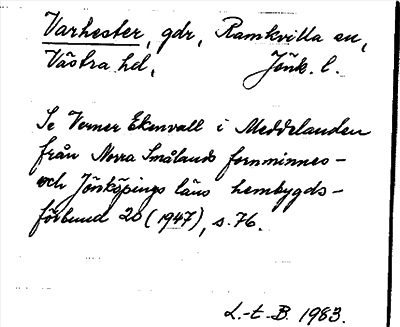 Varhester, gdr, Ramkvilla sn,
Västra hd, Jönk. l.
Se Verner Ekenvall i Meddelanden
från Norra Smålands fornminnes-
och Jönköpings läns hembygds-
förbund 20 (1947), s. 76.
L.-t. B. 1983.